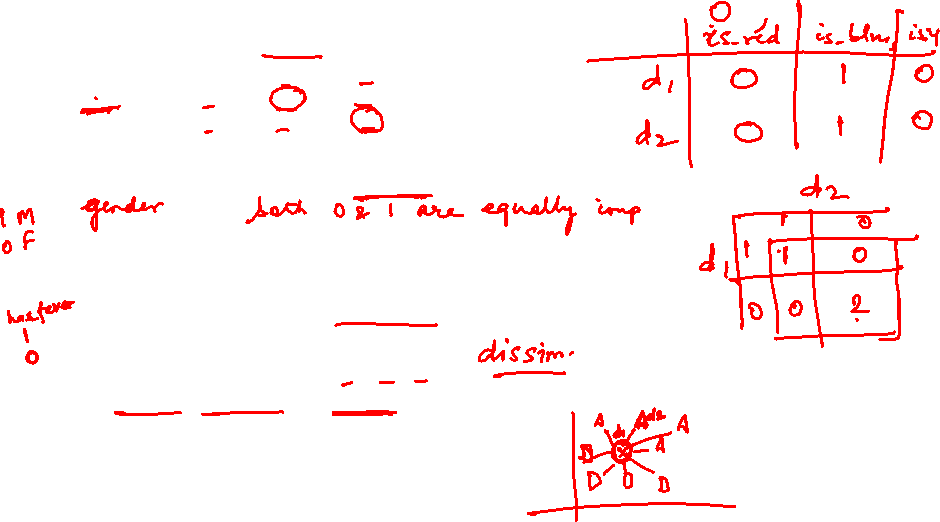 is_red is_blue isy
d1 0 1 0
d2 0 1 0
1 M gender both 0 & 1 are equally imp
0 F
d2
1 0
d1 1 1 0
0 0 2
has fever
1
0
dissim.
A A d2 A
d1
D x A
D D D